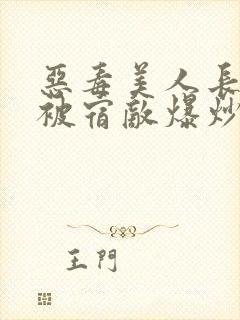 惡毒美人長
被宿敵爆炒
王門